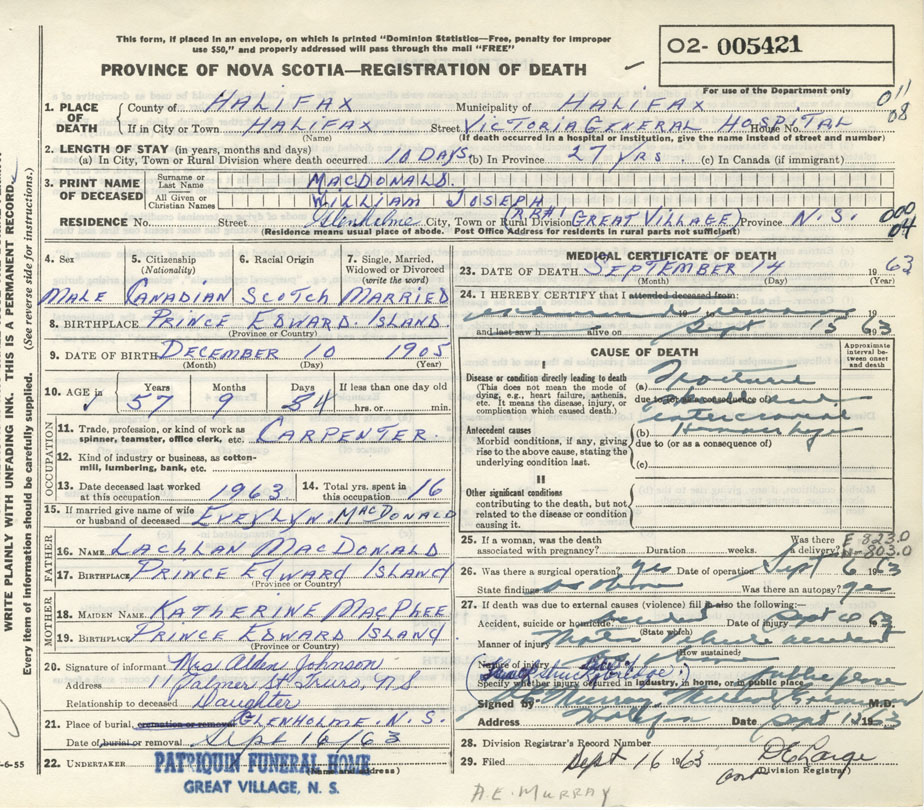 This form, if placed in an envelope, on which is printed "Dominion Statistics—Free, penalty for improper
use $50," and properly addressed will pass through the mail "FREE"
02- 005421
PROVINCE OF NOVA SCOTIA—REGISTRATION OF DEATH
For use of the Department only
011
08
1. PLACE OF DEATH
County of HALIFAX Municipality of HALIFAX
If in City or Town HALIFAX Street VICTORIA GENERAL HOSPITAL House No.
(Name) (If death occurred in a hospital or institution, give the name instead of street and number)
2. LENGTH OF STAY (in years, months and days)
(a) In City, Town or Rural Division where death occurred 10 DAYS (b) In Province 27 YRS. (c) In Canada (if immigrant)
3. PRINT NAME OF DECEASED
Surname or Last Name MACDONALD.
All Given or Christian Names WILLIAM JOSEPH
RESIDENCE No. Street Glenholme City, Town or Rural Division (RR#1 GREAT VILLAGE) Province N.S. 000
04
(Residence means usual place of abode. Post Office Address for residents in rural parts not sufficient)
4. Sex
MALE
5. Citizenship (Nationality)
CANADIAN
6. Racial Origin
SCOTCH
7. Single, Married, Widowed or Divorced (write the word)
MARRIED
8. BIRTHPLACE PRINCE EDWARD ISLAND
(Province or Country)
9. DATE OF BIRTH DECEMBER 10 1905
(Month) (Day) (Year)
10. AGE in Years 57 Months 9 Days 4 If less than one day old
hrs. or min.
OCCUPATION
11. Trade, profession, or kind of work as spinner, teamster, office clerk, etc. CARPENTER.
12. Kind of industry or business, as cotton-mill, lumbering, bank, etc.
13. Date deceased last worked at this occupation 1963.
14. Total yrs. spent in this occupation 16
15. If married give name of wife or husband of deceased EVELYN. MACDONALD
FATHER
16. NAME LACHLAN MACDONALD
17. BIRTHPLACE PRINCE EDWARD ISLAND
(Province or Country)
MOTHER
18. MAIDEN NAME KATHERINE MACPHEE
19. BIRTHPLACE PRINCE EDWARD ISLAND.
(Province or Country)
20. Signature of informant Mrs Alden Johnson
Address 11 Palmer St Truro, N.S
Relationship to deceased Daughter
21. Place of burial, cremation or removal GLENHOLME, N.S.
Date of burial or removal Sept 16/63
22. UNDERTAKER PATRIQUIN FUNERAL HOME
(Name and address)
GREAT VILLAGE, N. S.
MEDICAL CERTIFICATE OF DEATH
23. DATE OF DEATH SEPTEMBER 14 1963
(Month) (Day) (Year)
24. I HEREBY CERTIFY that I attended deceased from:
19 19
and last saw h alive on Sept 15 1963
CAUSE OF DEATH
Approximate interval between onset and death
I
Disease or condition directly leading to death
(This does not mean the mode of dying, e.g., heart failure, asthenia, etc. It means the disease, injury, or complication which caused death.)
(a) Fracture
due to (or as a consequence of)
Antecedent causes
Morbid conditions, if any, giving rise to the above cause, stating the underlying condition last.
(b) Hemorrhage
due to (or as a consequence of)
(c)
II
Other significant conditions
contributing to the death, but not related to the disease or condition causing it.
25. If a woman, was the death associated with pregnancy? Duration weeks. Was there a delivery?
E-823.0
N-803.0
26. Was there a surgical operation? yes Date of operation Sept 6 1963
State findings as above Was there an autopsy? yes
27. If death was due to external causes (violence) fill in also the following:—
Accident, suicide or homicide? accident Date of injury Sept 6 1963
(State which)
Manner of injury Motor Vehicle accident
(How sustained)
Nature of injury as above
Specify whether injury occurred in industry, in home, or in public place
Signed by M.D.
Address Halifax Date Sept 1963
28. Division Registrar's Record Number
29. Filed Sept 16 1963
(Division Registrar)
A.E. MURRAY
WRITE PLAINLY WITH UNFADING INK. THIS IS A PERMANENT RECORD.
Every item of information should be carefully supplied. (See reverse side for instructions.)
-6-55